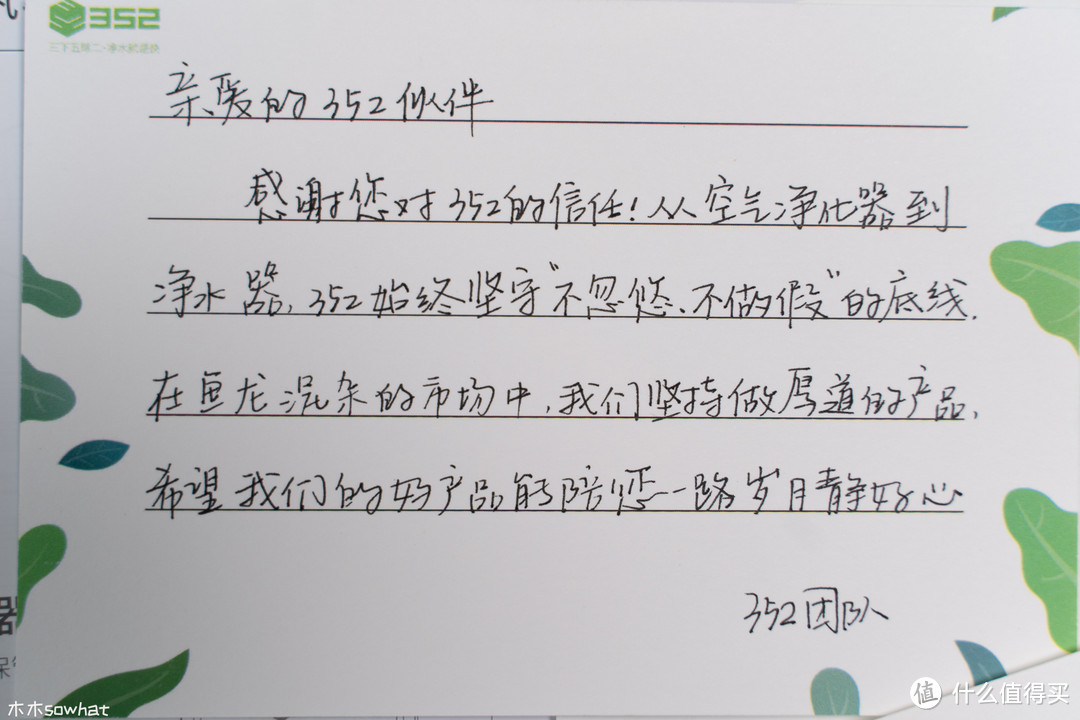 352
三下五除二·净水就是快
亲爱的352伙伴
感谢您对352的信任！从空气净化器到
净水器，352始终坚守“不忽悠、不做假”的底线.
在鱼龙混杂的市场中，我们坚持做厚道的产品，
希望我们的好产品能陪您一路岁月静好心
352团队
器
木木sowhat
值 什么值得买